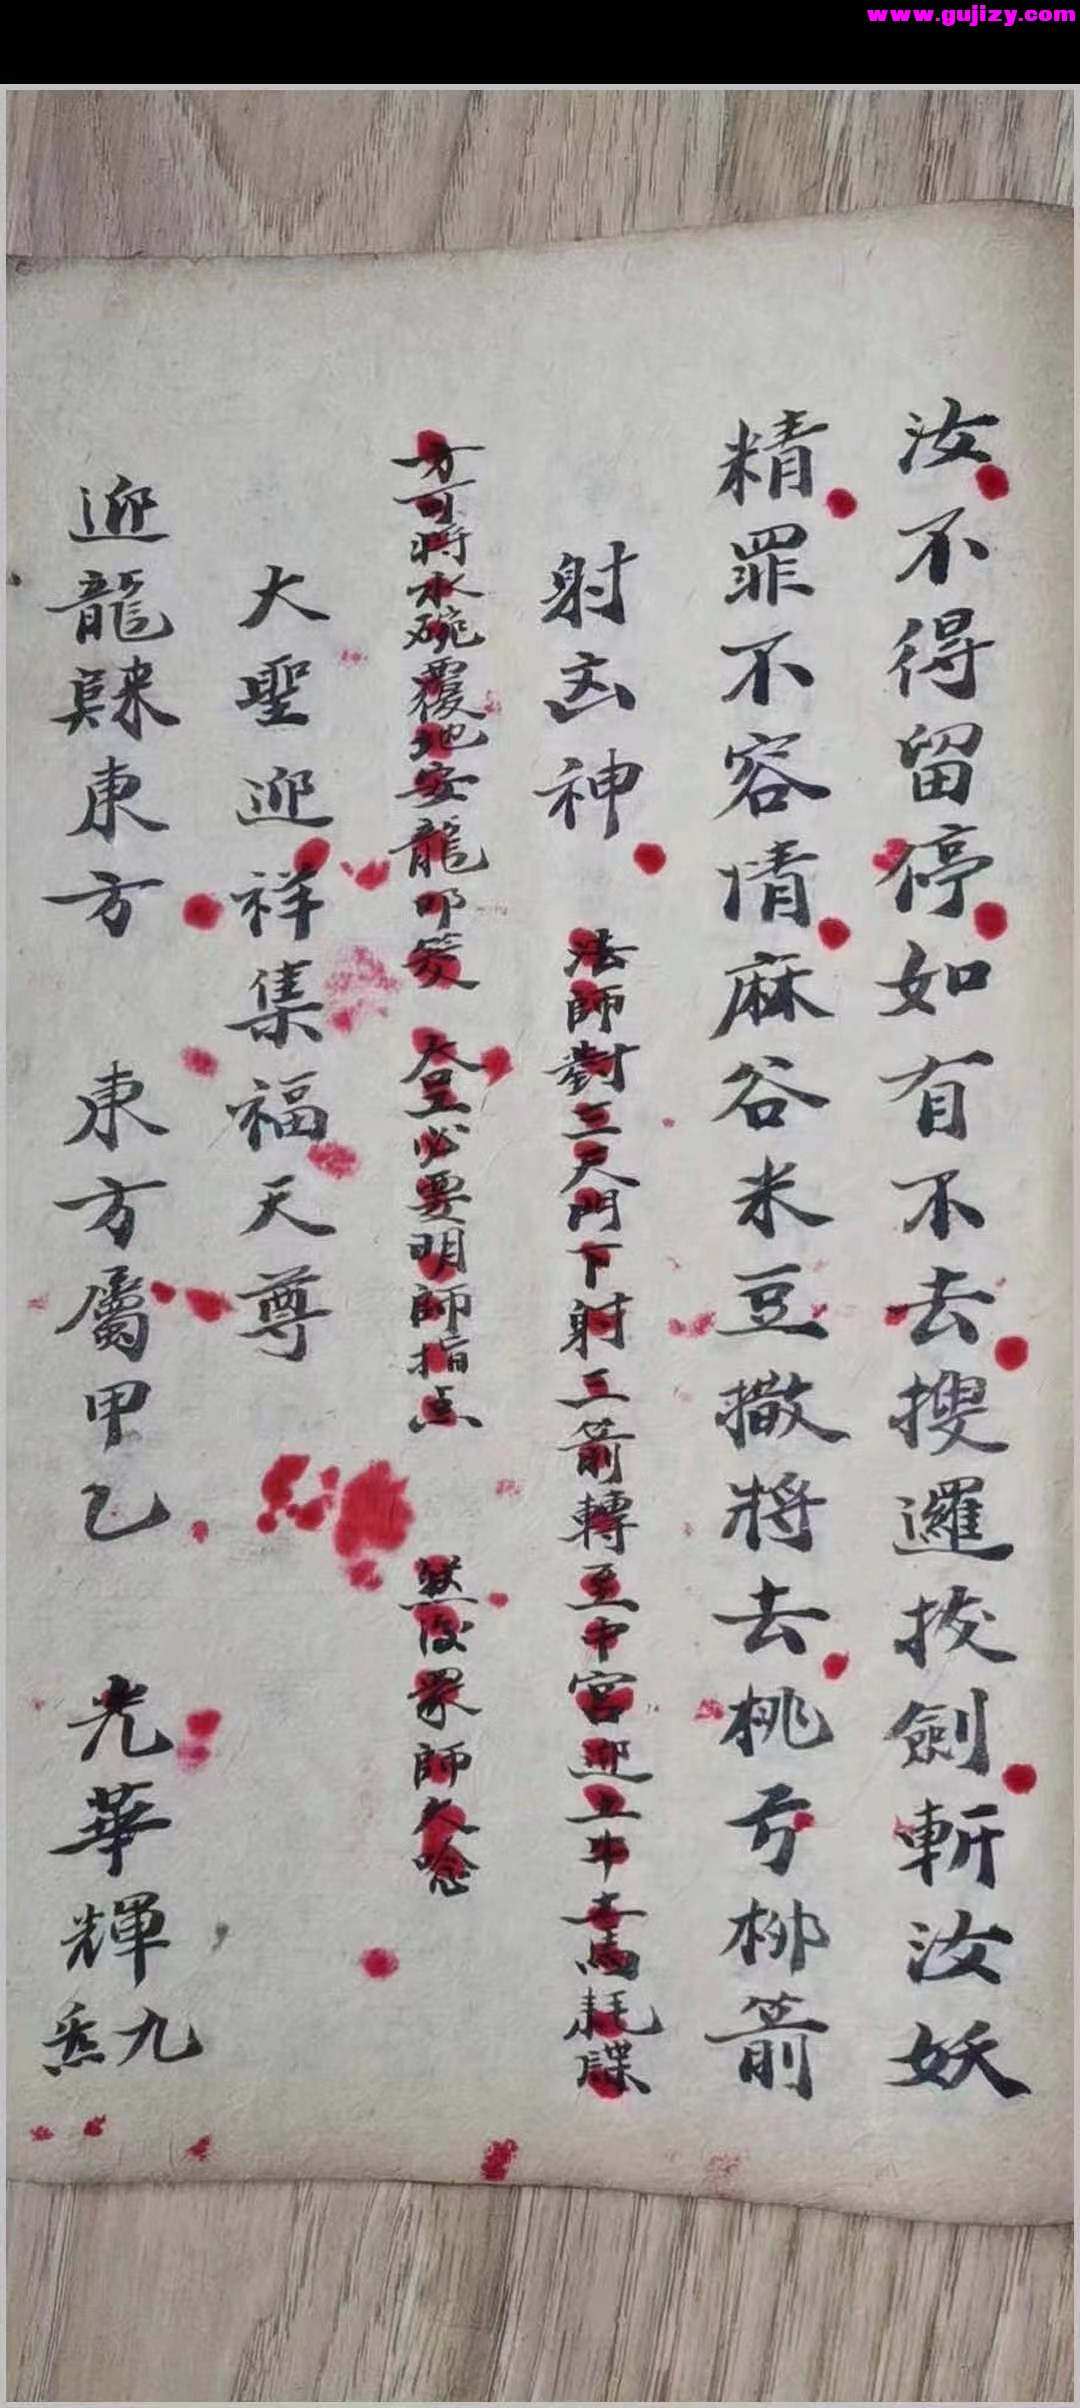 www.gujizy.com
汝不得留停如有不去搜邏拔劍斬汝妖
精罪不容情麻谷米豆撒將去桃弓柳箭
射凶神 法師對三天門下射三箭轉至中宮迎土牛土馬耗牒
方可將水碗覆地安龍叩筊 仝上必要明師指点 然後眾師大唸
大聖迎祥集福天尊
迎龍歸東方 東方屬甲乙 光華輝九炁